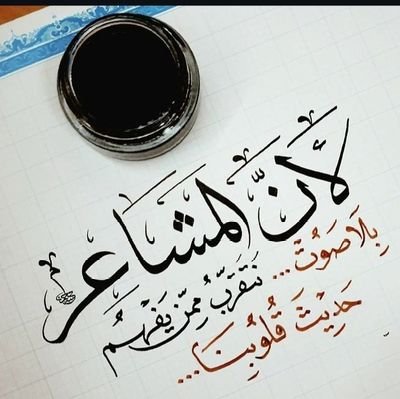 لأَنَّ المشَاعِر
بِلَا صَوْتٌ... نَتَقرَّبُ مِمّن يَفْهمُ
حَدِيْثَ قُلُوبِنَا...